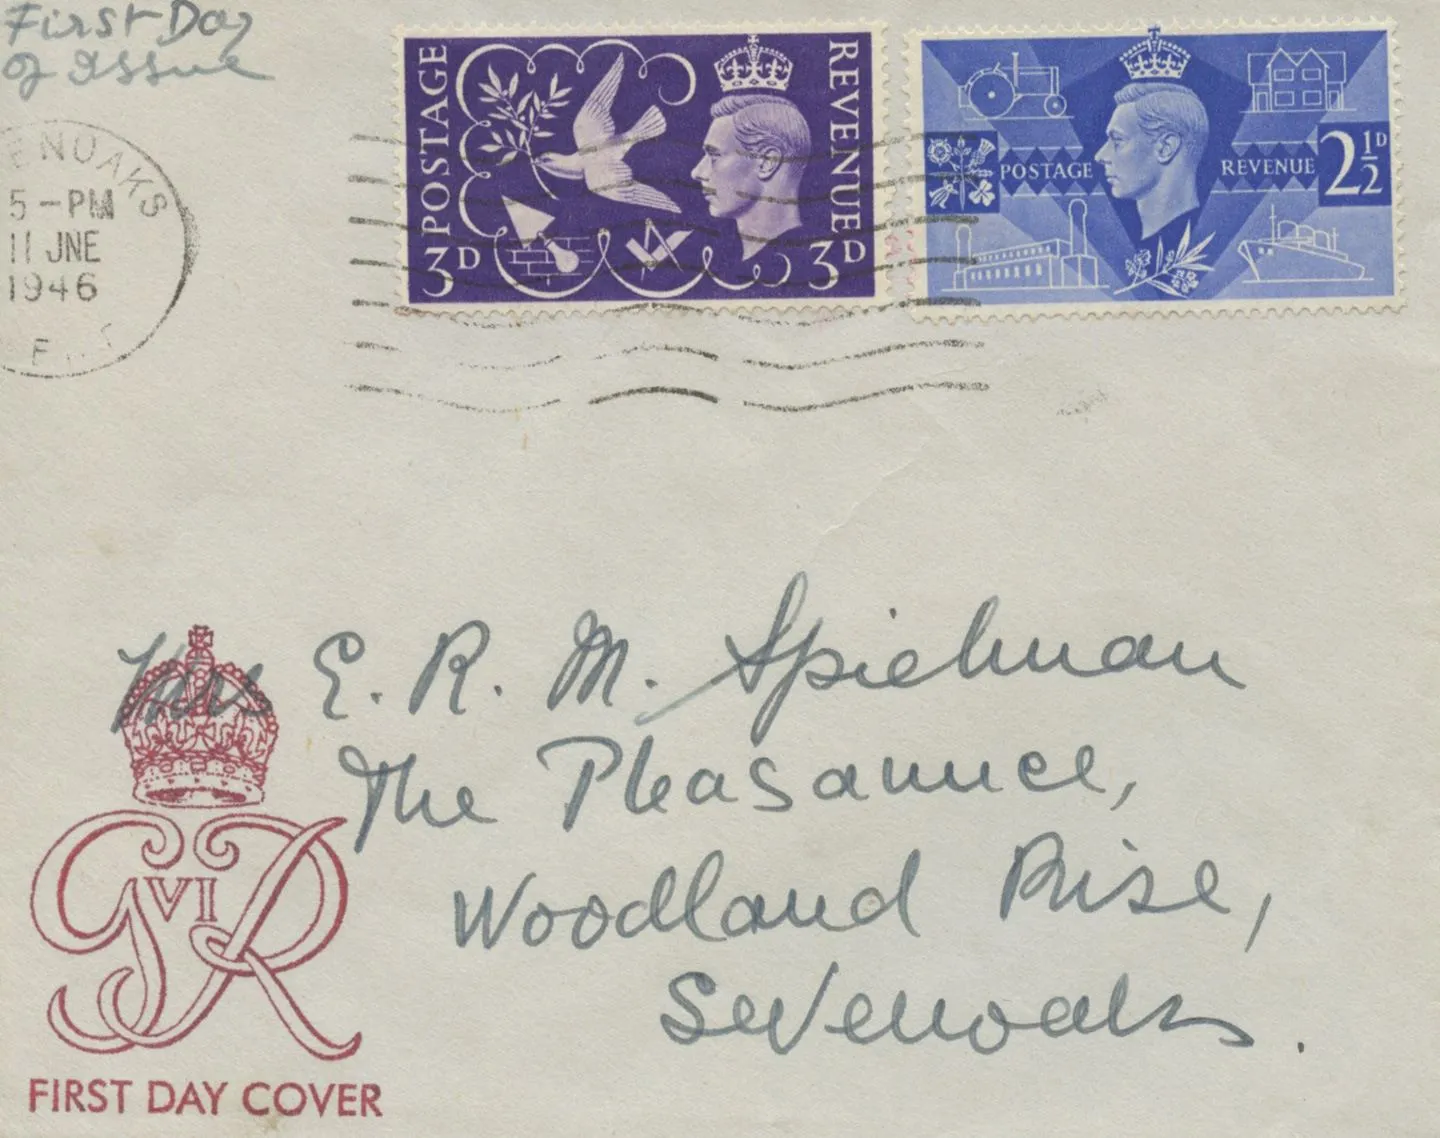 First Day
of Issue
ENOAKS
5-PM
11 JNE
1946
POSTAGE
REVENUE
3D
3D
POSTAGE
REVENUE
2½D
Mrs E. R. M. Spielman
The Pleasaunce,
Woodland Rise,
Sevenoaks.
G VI R
FIRST DAY COVER